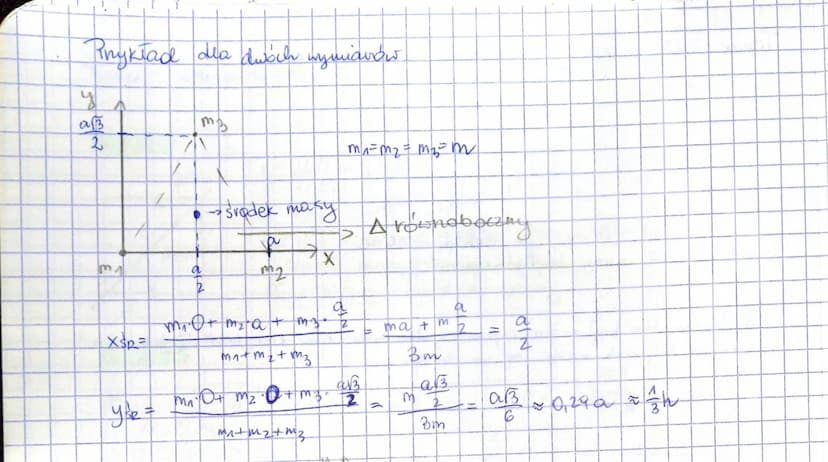 Przykład dla dwóch wymiarów
y
a√3/2
m3
m1=m2=m3=m
→środek masy
Δ równoboczny
a
x
m1
a/2
m2
xśr= (m1·0+m2·a+m3·a/2)/(m1+m2+m3) = (ma+m a/2)/3m = a/2
yśr= (m1·0+m2·0+m3·a√3/2)/(m1+m2+m3) = (m a√3/2)/3m = a√3/6 ≈ 0,29a ≈ 1/3h